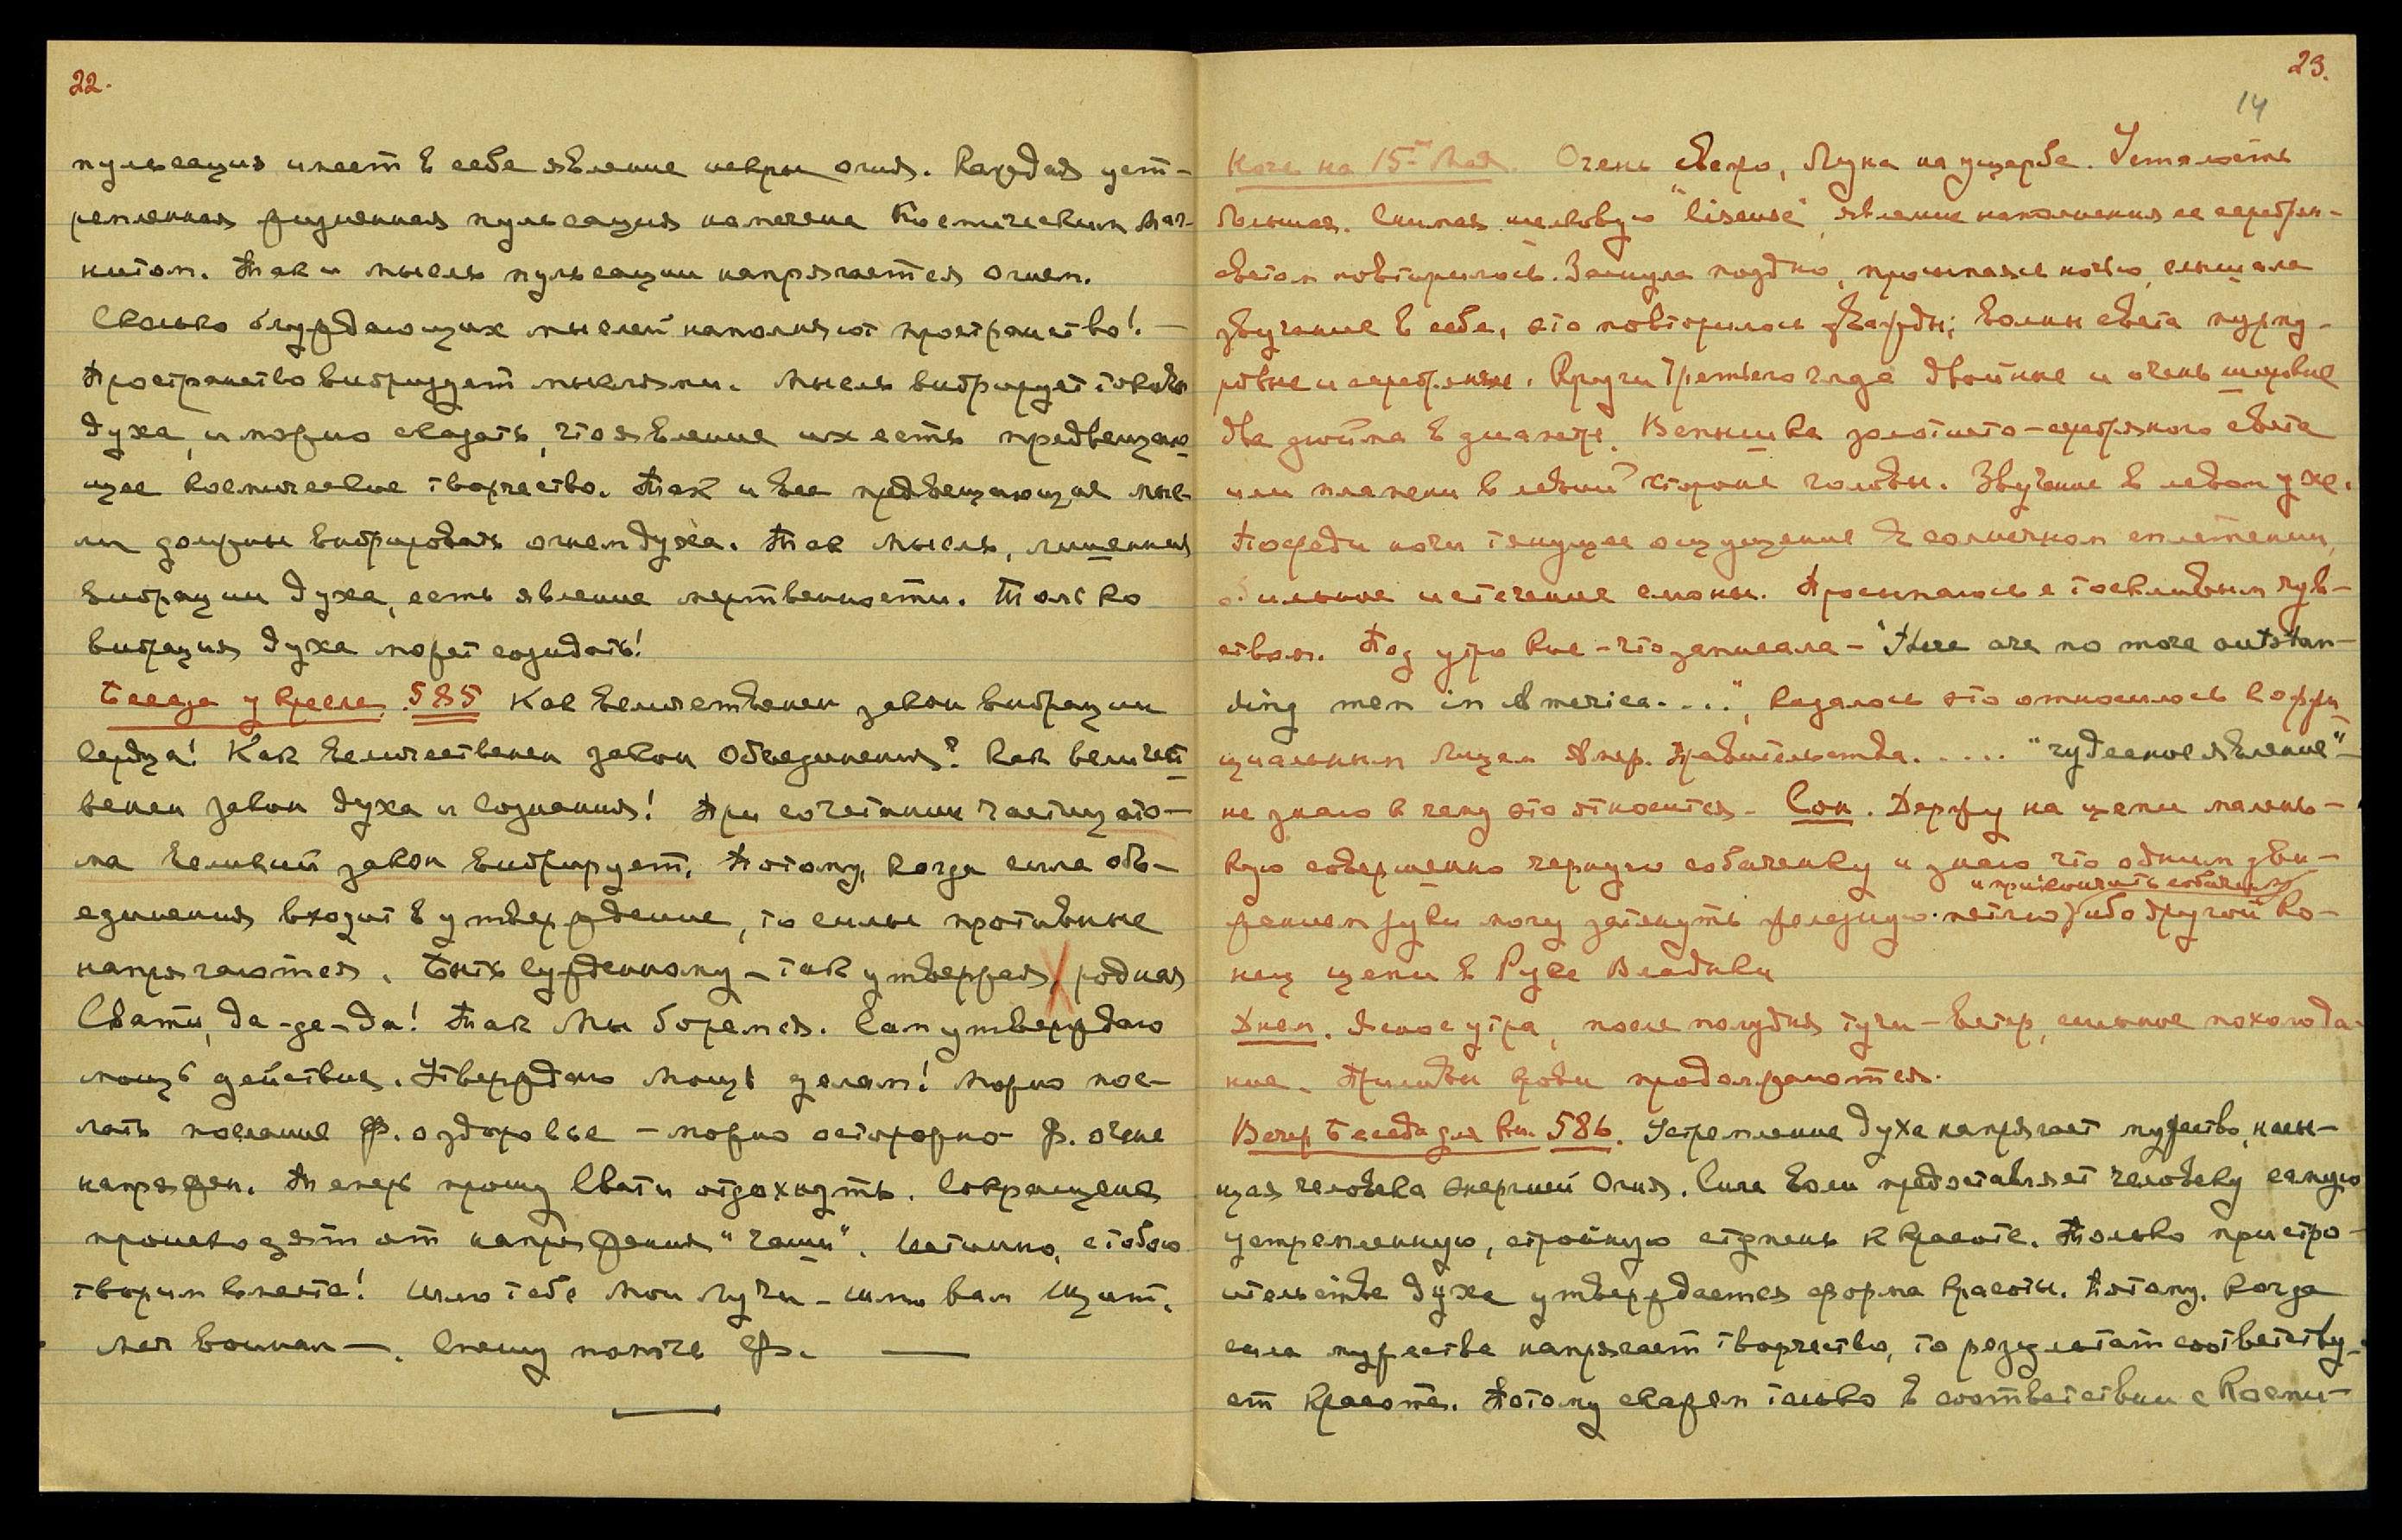 22.
пульсация имеет в себе явление искры огня. Каждая уст-
ремленная жизненная пульсация намечена Космическим Маг-
нитом. Так и мысль пульсации напрягается огнем.
Сколько блуждающих мыслей наполняют пространство! —
Пространство вибрирует мыслями. Мысль вибрирует токами
духа, и можно сказать, что явление их есть предвещаю
щее космическое творчество. Так и все предвещающие мыс
ли должны вибрировать огнем духа. Так мысль, лишенная
вибрации духа, есть явление мертвенности. Только
вибрация духа может созидать!
Беседа у кресла. 585 Как величественен закон вибрации
сердца! Как величественен закон Объединения! Как величест
венен закон духа и сознания! При сочетании частиц ато-
ма великий закон вибрирует. Потому, когда сила объ-
единения входит в утверждение, то силы противные
напрягаются. Быть сужденному – так утверждая, родная
Свати, да-да-да! Так Мы боремся. Сам утверждаю
мощь действия. Утверждаю мощь делам! Можно пос-
лать послание Ф. о здоровье – можно осторожно – Ф. очень
напряжен. Теперь прошу Свати отдохнуть. Сокращения
происходят от напряжения "чаши". Истинно, с тобою
творим вместе! Шлю тебе Мои Лучи – шлю вам Щит.
Меч воинам —. Спешу помочь Ф. —
23.
14
Ночь на 15-ое Мая. Очень свежо, Луна на ущербе. Усталость
большая. Снимая шелковую "liseuse", явление наполнения ее серебрян-
светом повторилось. Заснула поздно, просыпаясь ночью, слышала
звучание в себе, это повторилось дважды; волны света пурпу-
ровые и серебряные. Круги Третьего глаза двойные и очень широкие
два дюйма в диаметре. Вспышка золотисто-серебряного света
или пламени в левой стороне головы. Звучание в левом ухе.
Посреди ночи тянущее ощущение в солнечном сплетении,
обильное истечение слюны. Просыпалась с тоскливым чув-
ством. Под утро кое-что записала – "There are no more outstan-
ding men in America. . . .", казалось это относилось к оффи
циальным лицам Амер. Правительства. . . . . "чудесное явление" –
не знаю к чему это относится – Сон. Держу на цепи малень-
кую совершенно черную собаченку и знаю что одним дви-
и прикончить собаченку
жением руки могу затянуть железную петлю, ибо другой ко-
нец цепи в Руке Владыки
Днем. Ясное утро, после полудня тучи – ветер, сильное похолода-
ние. Приливы крови продолжаются.
Вечер Беседа для Кн. 586. Устремление духа напрягает мужество, насы-
щая человека энергией Огня. Сила воли предоставляет человеку самую
устремленную, стройную ступень к Красоте. Только при стро-
ительстве духа утверждается форма Красоты. Потому, когда
сила мужества напрягает творчество, то результат соответству-
ет Красоте. Потому скажем только в соответствии с Косми-